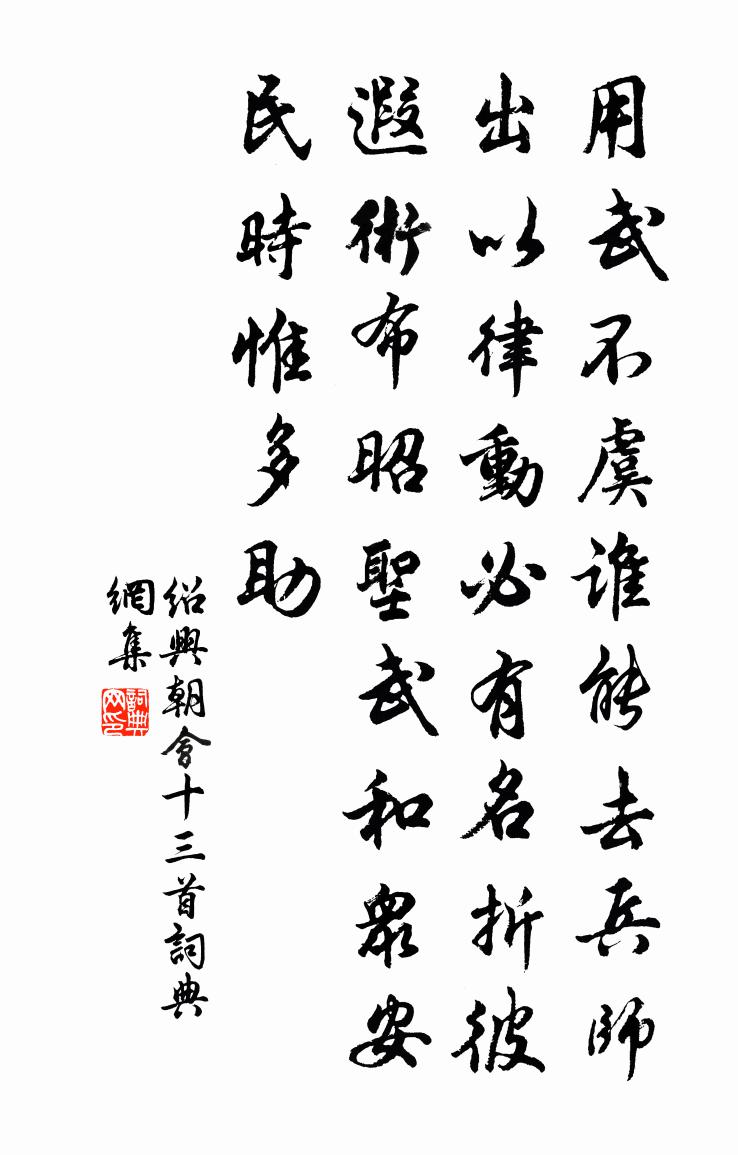 用武不虞誰能去兵師
出以律動必有名折彼
遐術布昭聖武和眾安
民時惟多助
紹興朝會十三首詞典
網集
詞典網印